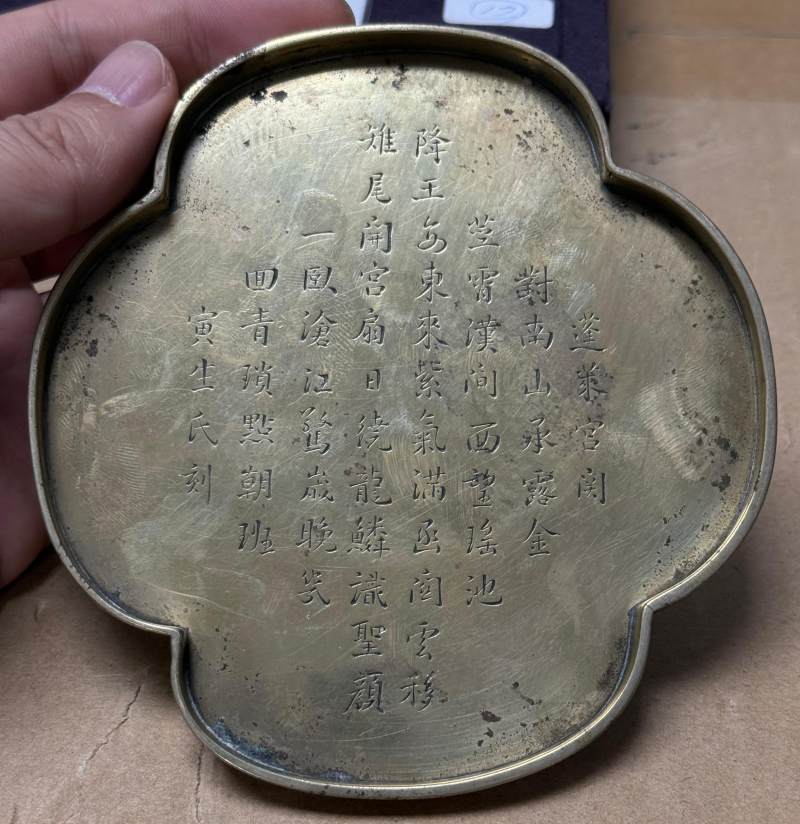 蓬萊宮闕
對南山承露金
莖霄漢间西望瑤池
降王母東來紫氣滿函関雲移
雉尾開宮扇日繞龍鱗識聖顏
一臥滄江驚歲晚幾
回青瑣點朝班
寅生氏刻